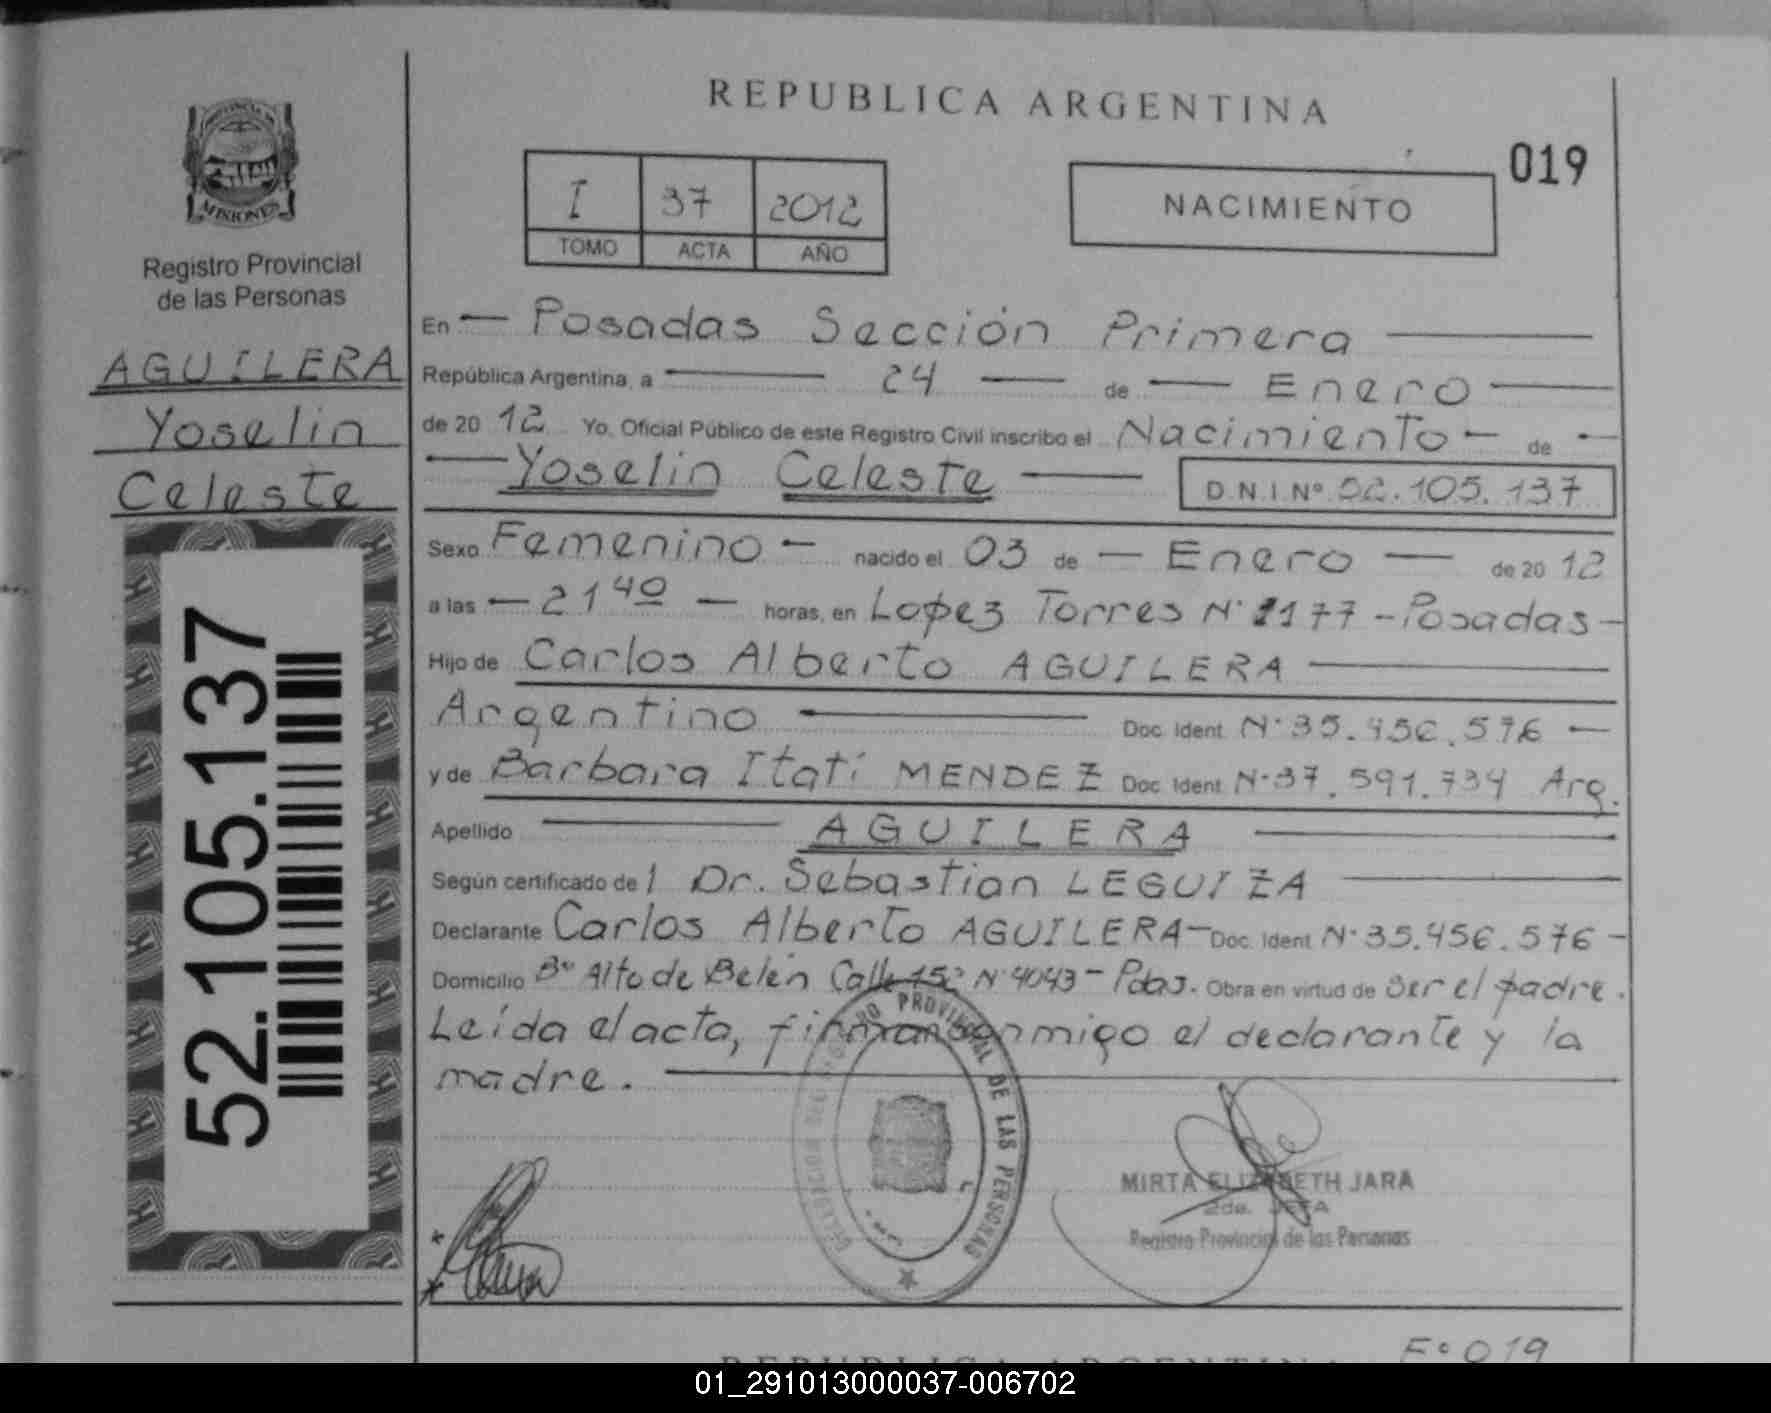 REPUBLICA ARGENTINA
019
I 37 2012
TOMO ACTA AÑO
NACIMIENTO
MISIONES
Registro Provincial
de las Personas
AGUILERA
Yoselin
Celeste
52.105.137
En Posadas Sección Primera
República Argentina, a 24 de Enero
de 20 12 Yo, Oficial Público de este Registro Civil inscribo el Nacimiento de
Yoselin Celeste D.N.I. Nº 52.105.137
Sexo Femenino nacido el 03 de Enero de 20 12
a las 21 40 horas, en Lopez Torres Nº 1177 - Posadas
Hijo de Carlos Alberto AGUILERA
Argentino Doc. Ident. Nº 35.456.576
y de Barbara Itatí MENDEZ Doc. Ident. Nº 37.591.734 Arg.
Apellido AGUILERA
Según certificado de l Dr. Sebastian LEGUIZA
Declarante Carlos Alberto AGUILERA Doc. Ident. Nº 35.456.576
Domicilio Bº Alto de Belén Calle Nº 4043 - Pdas. Obra en virtud de ser el padre.
Leída el acta, firman conmigo el declarante y la
madre.
PROVINCIAL DE LAS PERSONAS
MIRTA ELIZABETH JARA
2da. JEFA
Registro Provincial de las Personas
Fº 019
REPUBLICA ARGENTINA
01_291013000037-006702